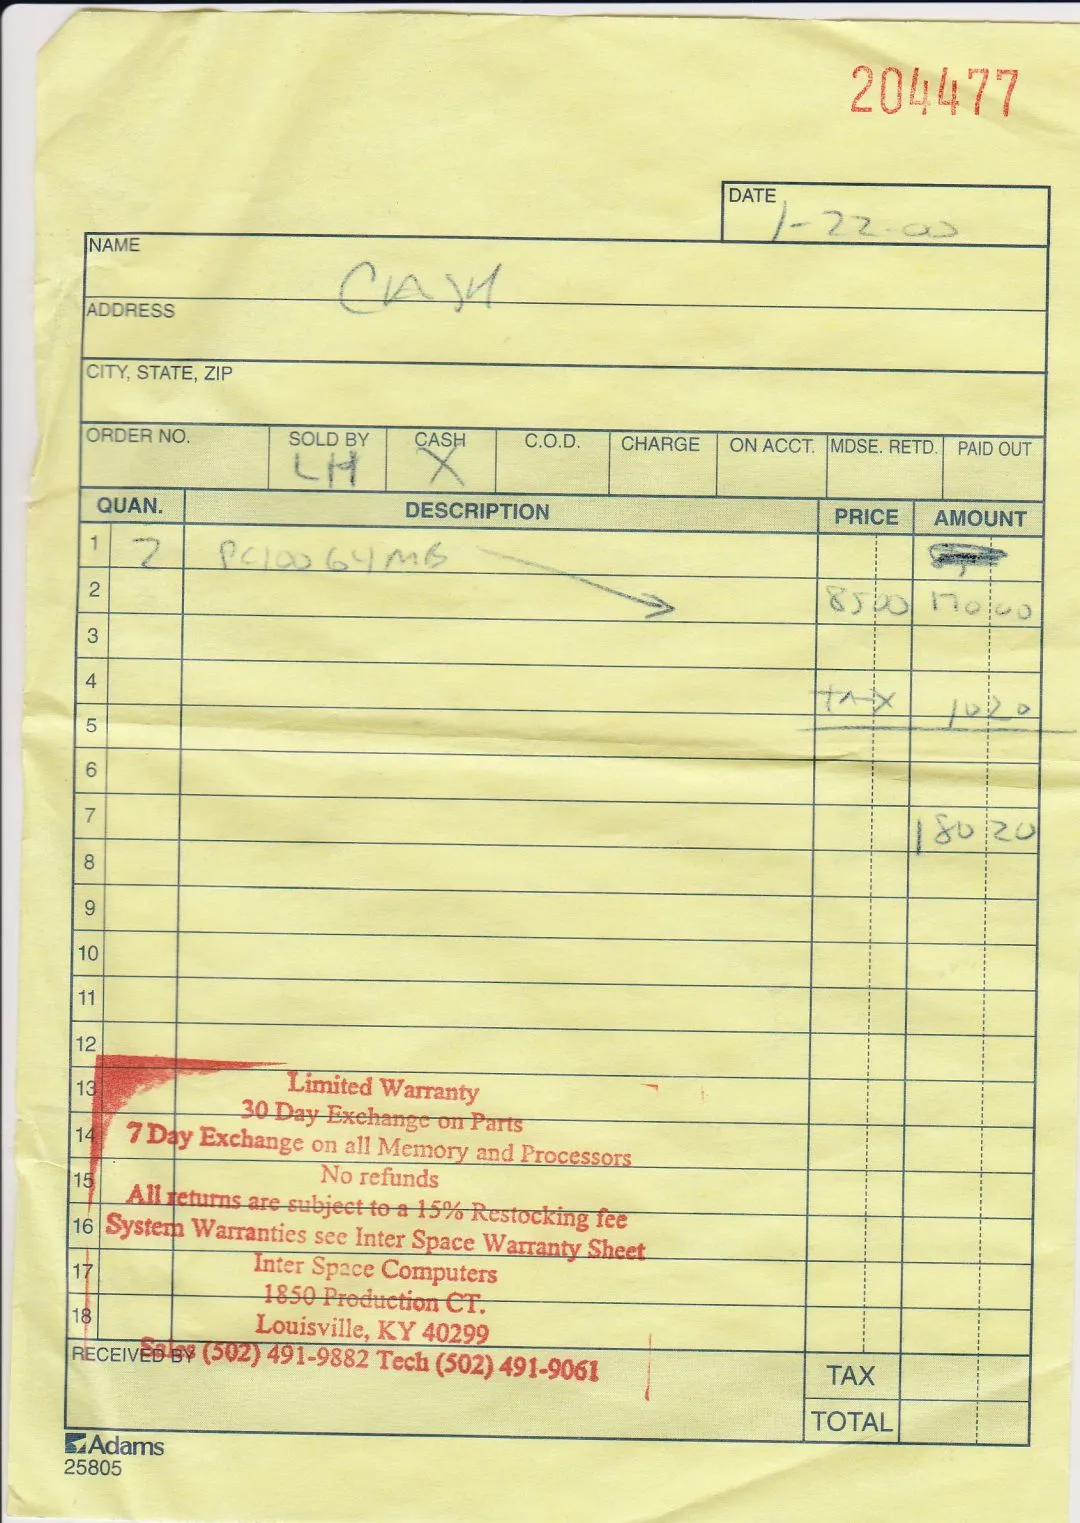 204477
DATE 1-22-00
NAME CASH
ADDRESS
CITY, STATE, ZIP
ORDER NO. SOLD BY CASH C.O.D. CHARGE ON ACCT. MDSE. RETD. PAID OUT
LH X
QUAN. DESCRIPTION PRICE AMOUNT
1 2 PC100 64MB
2 85 00 170 00
3
4 TAX 10 20
5
6
7 180 20
8
9
10
11
12
13 Limited Warranty
30 Day Exchange on Parts
14 7 Day Exchange on all Memory and Processors
15 No refunds
All returns are subject to a 15% Restocking fee
16 System Warranties see Inter Space Warranty Sheet
17 Inter Space Computers
1850 Production CT.
18 Louisville, KY 40299
RECEIVED BY Sales (502) 491-9882 Tech (502) 491-9061
TAX
TOTAL
Adams
25805